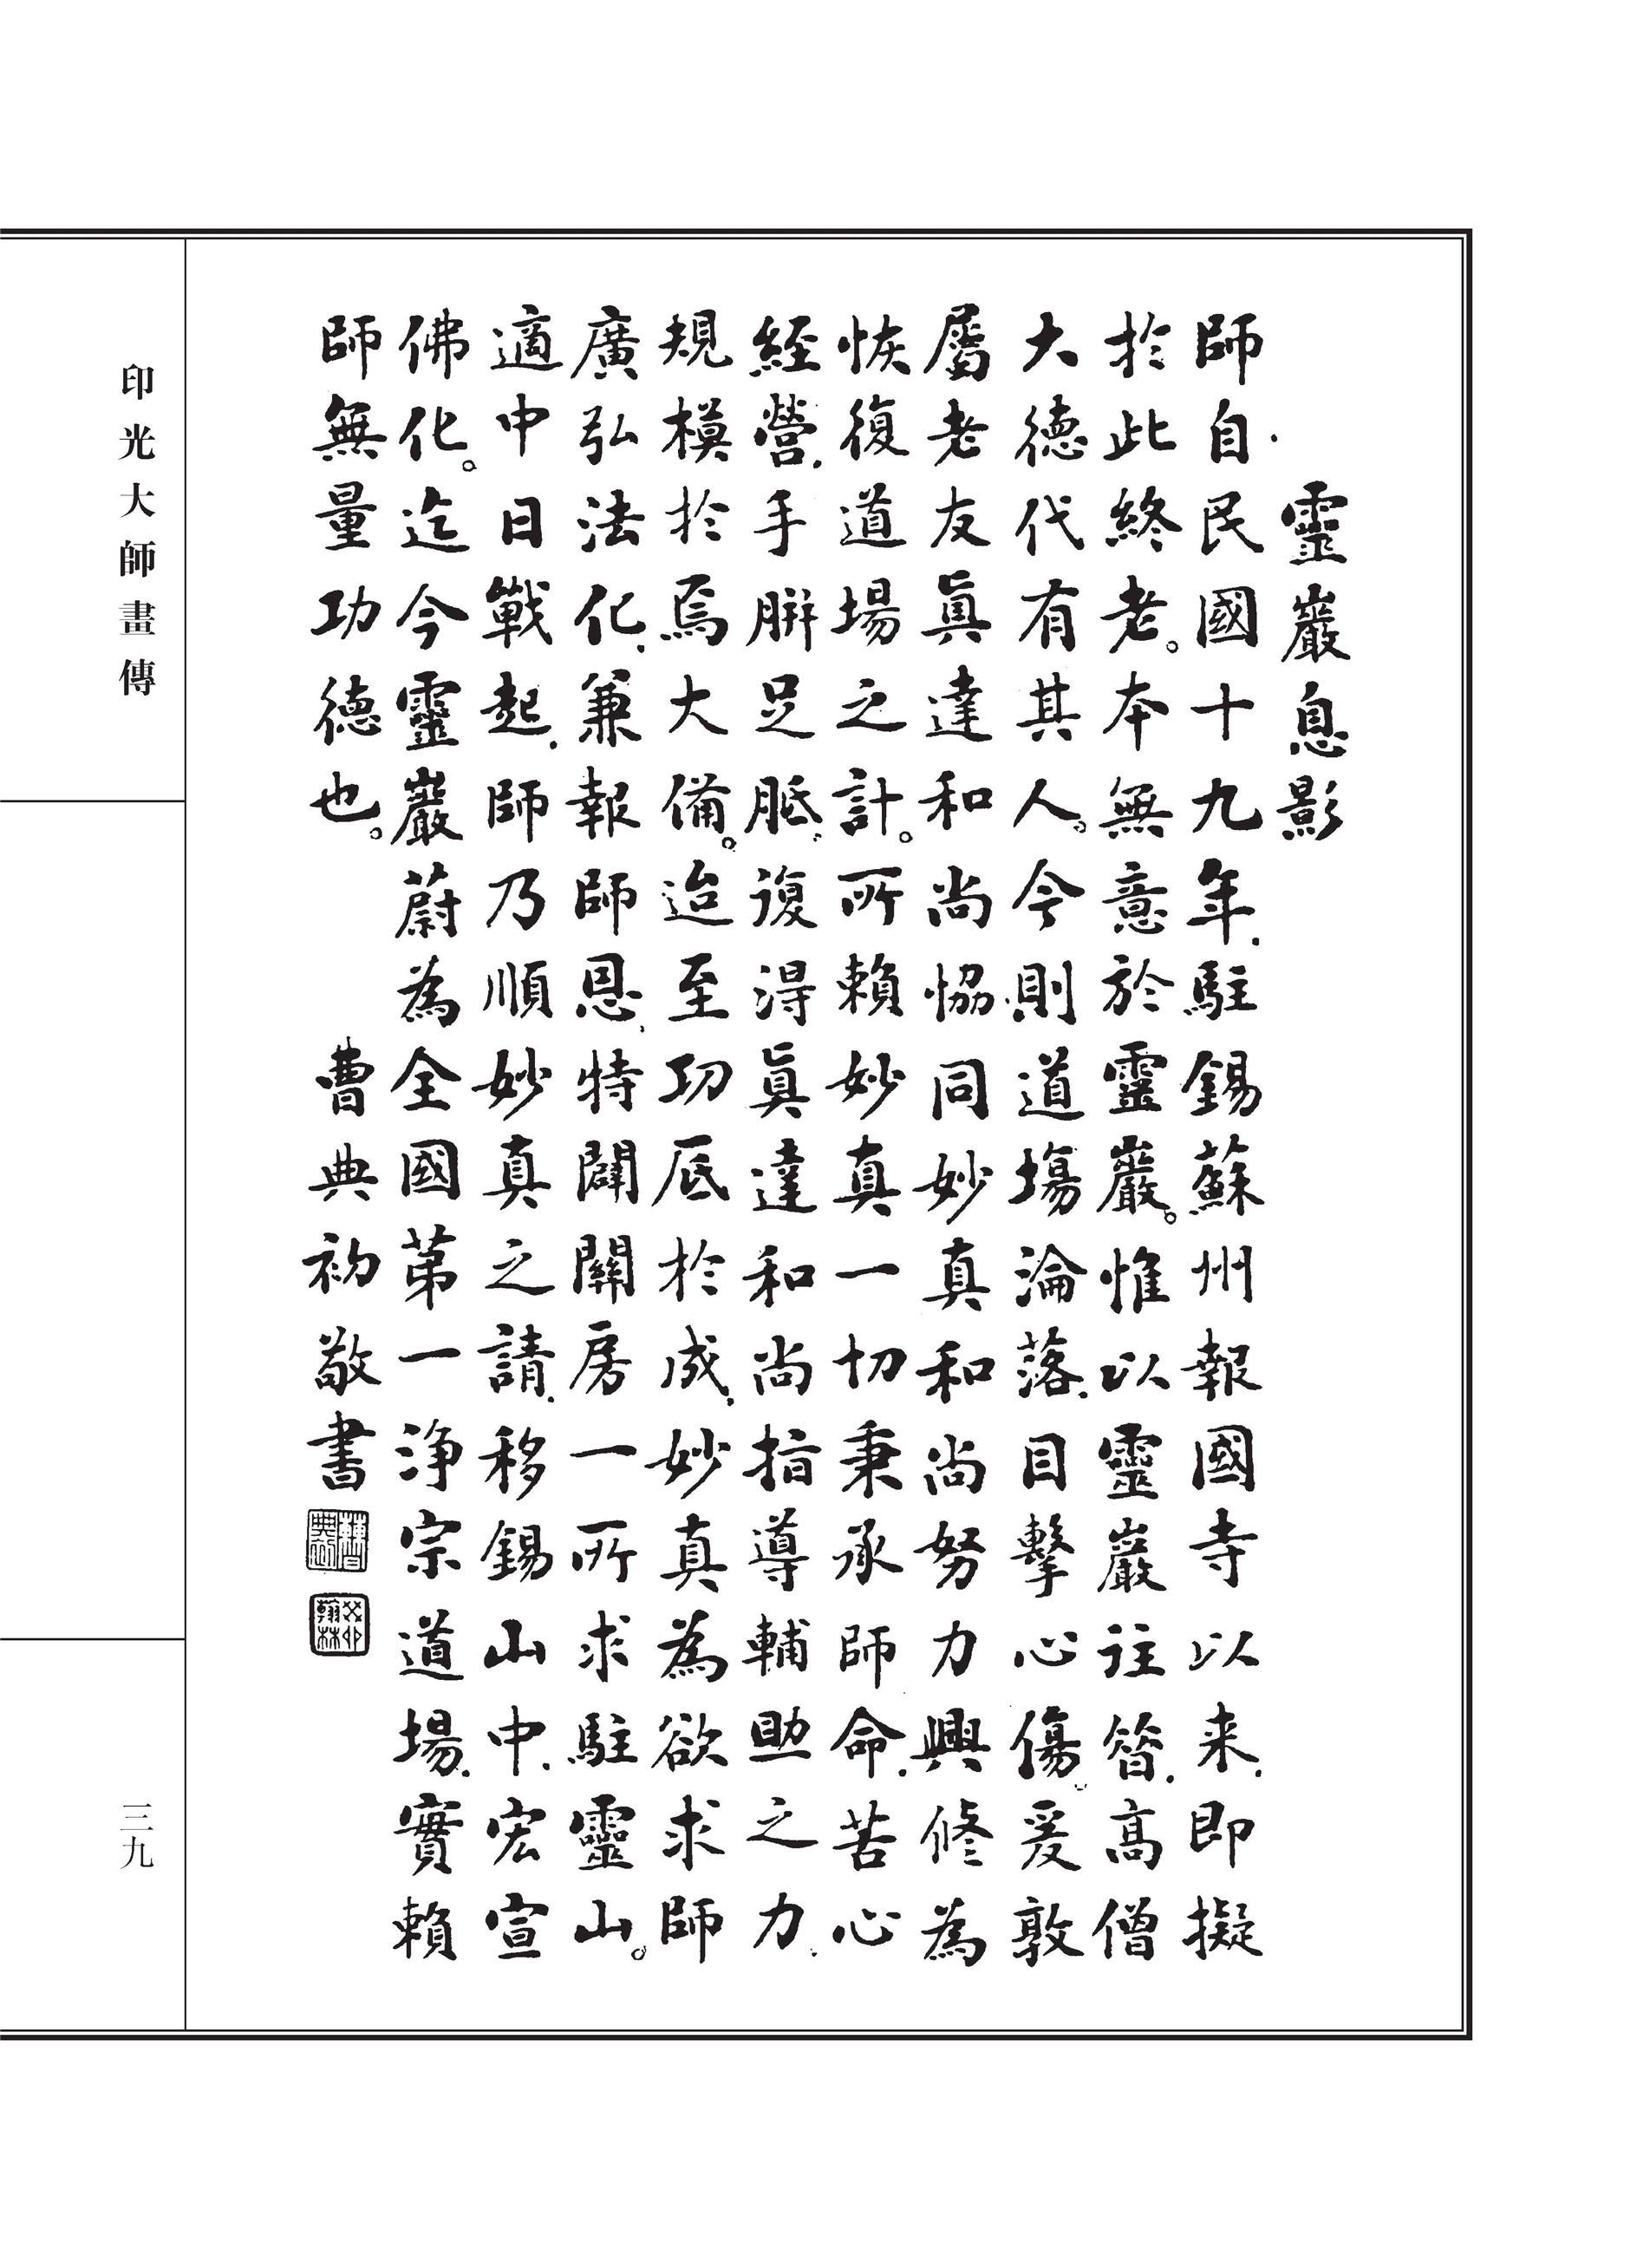 靈巖息影
師自民國十九年.駐錫蘇州報國寺以来.即擬
於此終老。本無意於靈巖。惟以靈巖往昝.髙僧
大德代有其人。今則道塲淪落.目擊心傷。爰敦
屬老友眞達和尚恊同妙真和尚努力興修為
恢復道場之計。所賴妙真一切秉承師命.苦心
經營.手胼足胝.復得眞達和尚指導輔助之力.
規模於焉大備。迨至功底於成.妙真為欲求師
廣弘法化.兼報師恩.特闢關房一所求駐靈山。
適中日戰起.師乃順妙真之請.移錫山中.宏宣
佛化。迄今靈巖蔚為全國第一淨宗道場.實賴
師無量功德也。
曹典初敬書
印光大師畫傳
三九